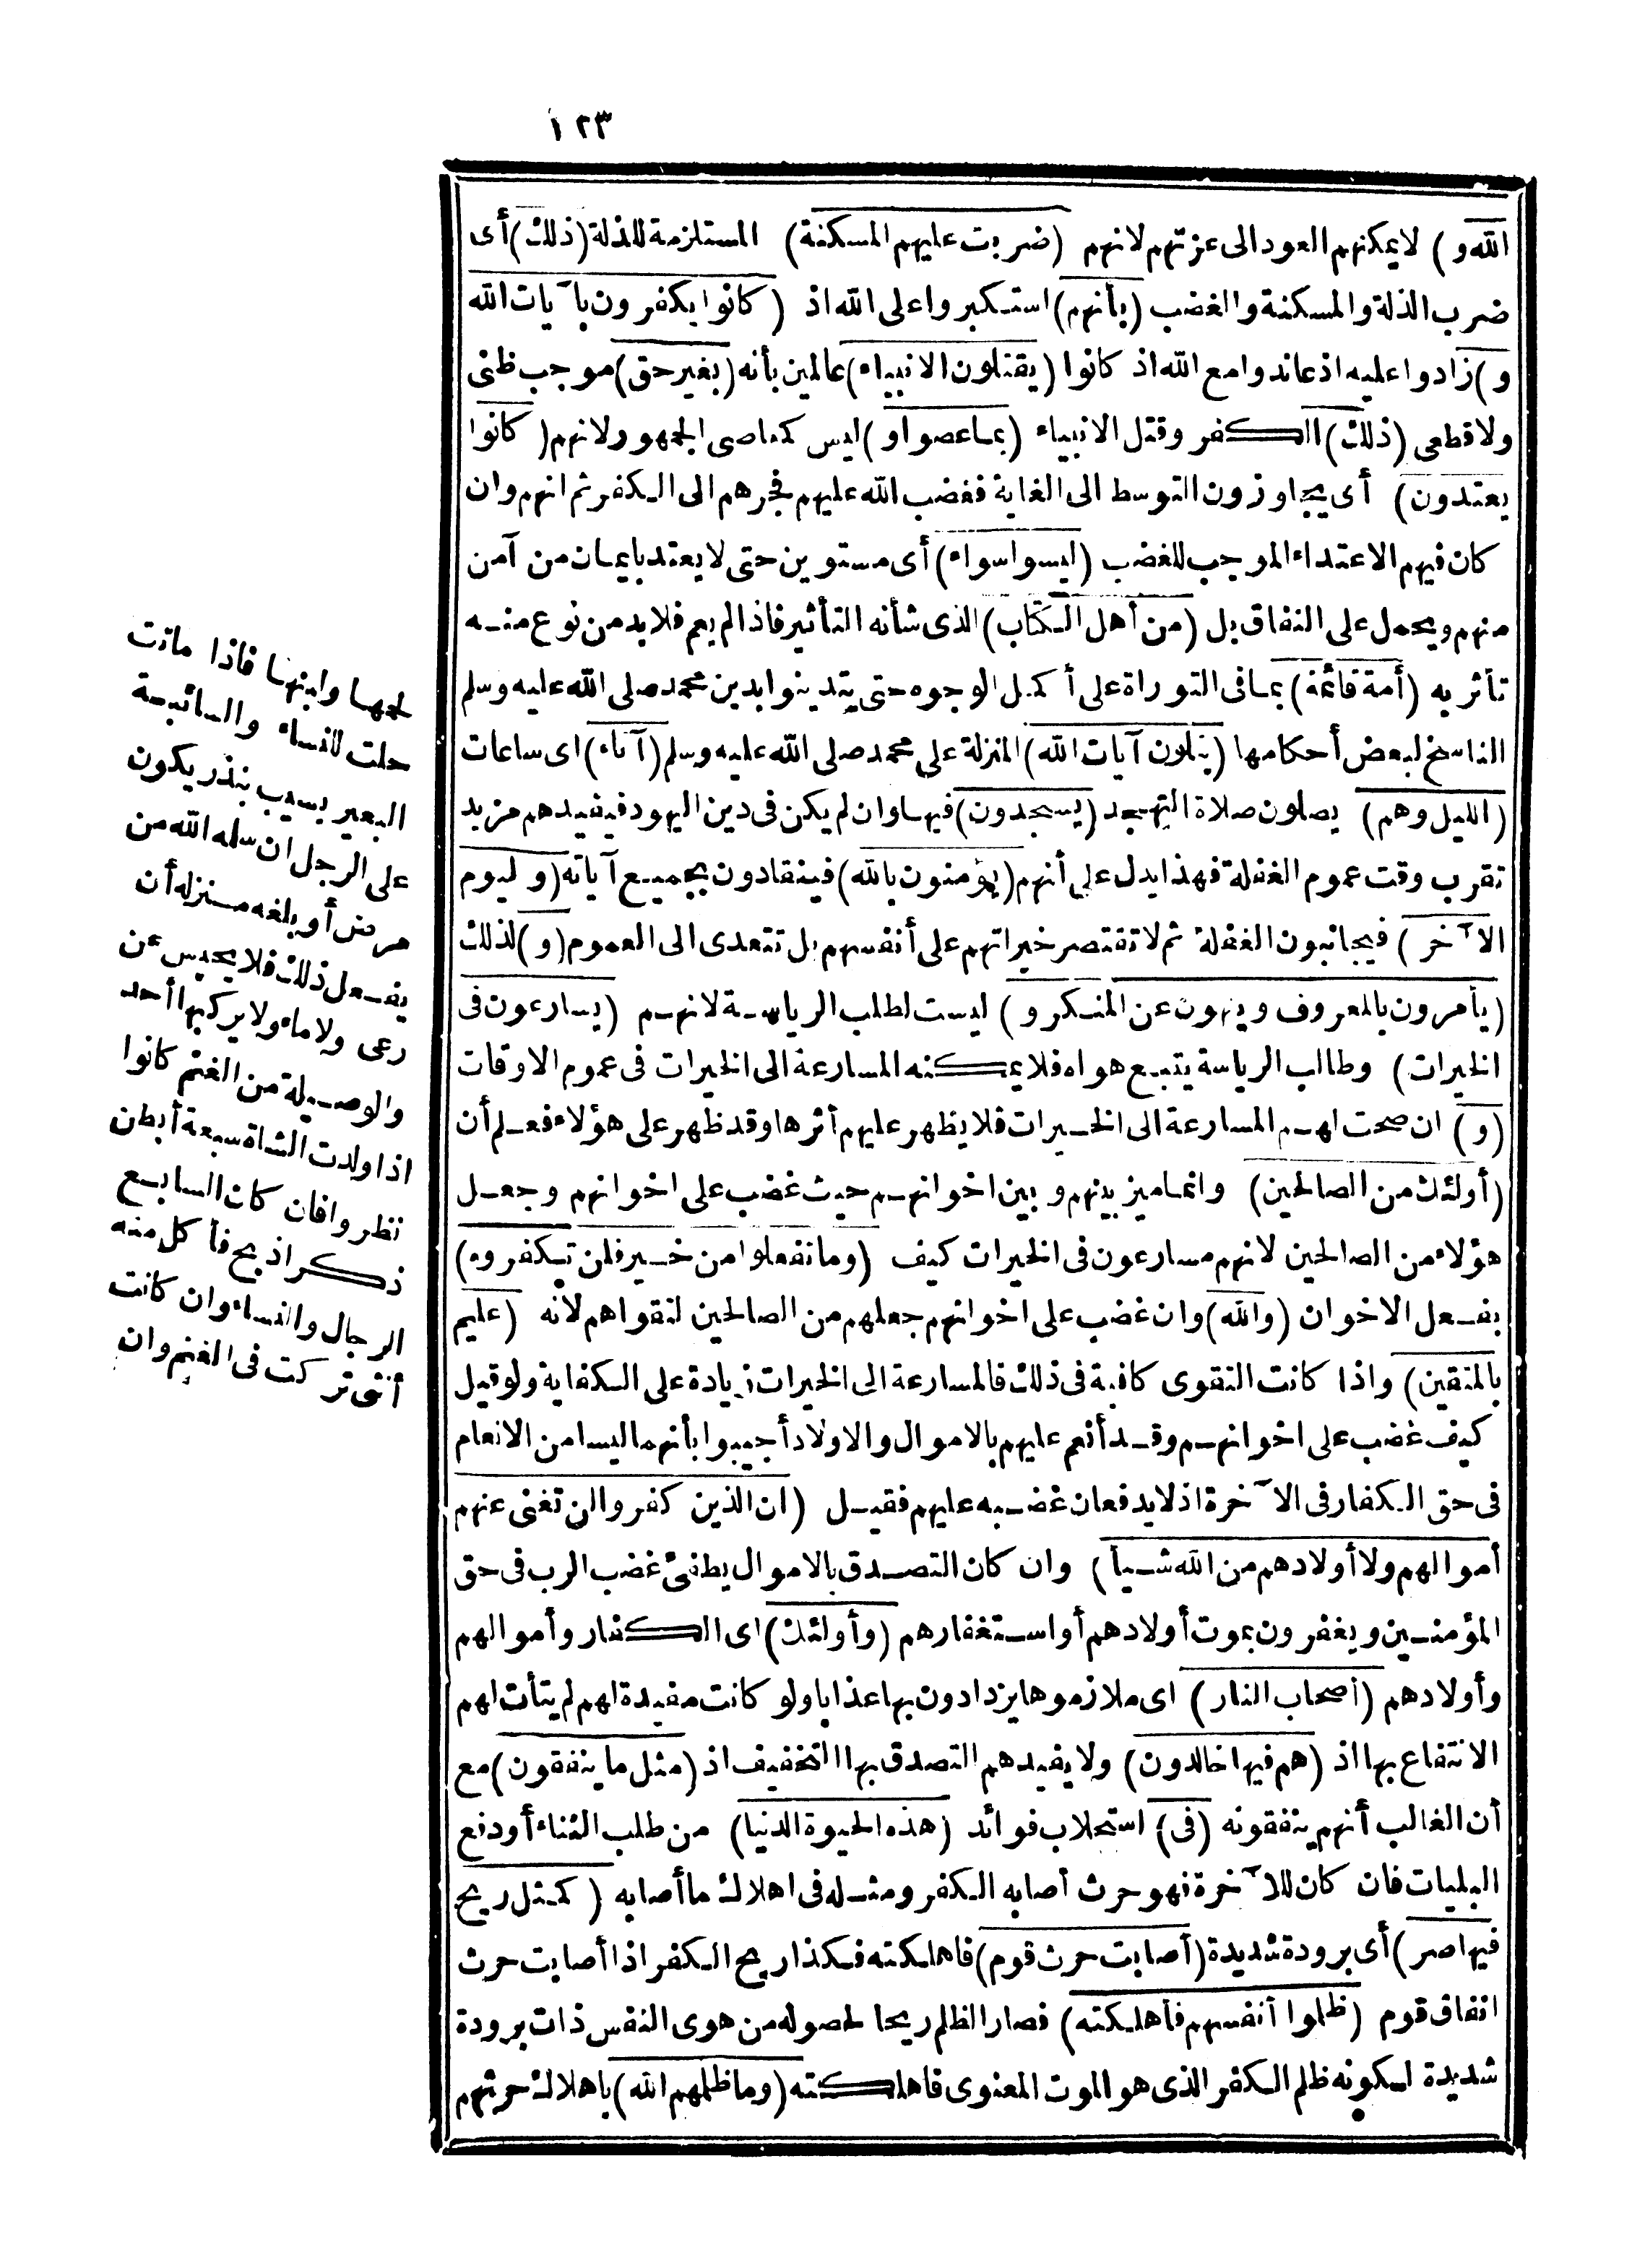 ١٢٣
الله و) لا يمكنهم العود الى عزتهم لانهم (ضربت عليهم المسكنة) المستلزمة للذلة (ذلك) أى
ضرب الذلة والمسكنة والغضب (بأنهم) استكبروا على الله اذ (كانوا يكفرون بآيات الله
و) زادوا عليه اذ عاندوا مع الله اذ كانوا (يقتلون الانبياء) عالمين بأنه (بغير حق) موجب ظنى
ولا قطعى (ذلك) الكفر وقتل الانبياء (بما عصوا و) ليس كمعاصى الجمهور لانهم (كانوا
يعتدون) أى يجاوزون التوسط الى الغاية فغضب الله عليهم فجرهم الى الكفر ثم انهم وان
كان فيهم الاعتداء الموجب للغضب (ليسوا سواء) أى مستوين حتى لا يعتد بايمان من آمن
منهم ويحمل على النفاق بل (من أهل الكتاب) الذى شأنه التأثير فاذا لم يعم فلا بد من نوع منه
تأثر به (أمة قائمة) بما فى التوراة على أكمل الوجوه حتى يتدينوا بدين محمد صلى الله عليه وسلم
الناسخ لبعض أحكامها (يتلون آيات الله) المنزلة على محمد صلى الله عليه وسلم (آناء) اى ساعات
(الليل وهم) يصلون صلاة التهجد (يسجدون) فيها وان لم يكن فى دين اليهود فيفيدهم مزيد
تقرب وقت عموم الغفلة فهذا يدل على أنهم (يؤمنون بالله) فينقادون بجميع آياته (و ليوم
الآخر) فيجانبون الغفلة ثم لا تقتصر خيراتهم على أنفسهم بل تتعدى الى العموم (و) لذلك
(يأمرون بالمعروف وينهون عن المنكر و) ليست لطلب الرياسة لانهم (يسارعون فى
الخيرات) وطالب الرياسة يتبع هواه فلا يمكنه المسارعة الى الخيرات فى عموم الاوقات
(و) ان صحت لهم المسارعة الى الخيرات فلا يظهر عليهم أثرها وقد ظهر على هؤلاء فعلم أن
(أولئك من الصالحين) وانما ميز بينهم وبين اخوانهم حيث غضب على اخوانهم وجعل
هؤلاء من الصالحين لانهم مسارعون فى الخيرات كيف (وما تفعلوا من خير فلن تكفروه)
بفعل الاخوان (والله) وان غضب على اخوانهم جعلهم من الصالحين لتقواهم لانه (عليم
بالمتقين) واذا كانت التقوى كافية فى ذلك فالمسارعة الى الخيرات زيادة على الكفاية ولو قيل
كيف غضب على اخوانهم وقد أنعم عليهم بالاموال والاولاد أجيبوا بأنهما ليسا من الانعام
فى حق الكفار فى الآخرة اذ لا يدفعان غضبه عليهم فقيل (ان الذين كفروا لن تغنى عنهم
أموالهم ولا أولادهم من الله شيأ) وان كان التصدق بالاموال يطفئ غضب الرب فى حق
المؤمنين ويغفرون بموت أولادهم أو استغفارهم (وأولئك) اى الكفار وأموالهم
وأولادهم (أصحاب النار) اى ملازموها يزدادون بها عذابا ولو كانت مفيدة لهم لم يتأت لهم
الانتفاع بها اذ (هم فيها خالدون) ولا يفيدهم التصدق بها التخفيف اذ (مثل ما ينفقون) مع
أن الغالب أنهم ينفقونه (فى) استجلاب فوائد (هذه الحيوة الدنيا) من طلب الثناء أو دفع
البليات فان كان للآخرة فهو حرث أصابه الكفر ومثله فى اهلاك ما أصابه (كمثل ريح
فيها صر) أى برودة شديدة (أصابت حرث قوم) فاهلكته فكذا ريح الكفر اذا أصابت حرث
انفاق قوم (ظلموا أنفسهم فأهلكته) فصار الظلم ريحا لحصوله من هوى النفس ذات برودة
شديدة لكونه ظلم الكفر الذى هو الموت المعنوى فاهلكته (وما ظلمهم الله) باهلاك حرثهم
لحمها ولبنها فاذا ماتت
حلت للنساء والسائبة
البعير يسيب بنذر يكون
على الرجل ان سلمه الله من
مرض أو بلغه منزله أن
يفعل ذلك فلا يحبس عن
رعى ولا ماء ولا يركبها أحد
والوصيلة من الغنم كانوا
اذا ولدت الشاة سبعة أبطن
نظروا فان كان السابع
ذكرا ذبح فأكل منه
الرجال والنساء وان كانت
أنثى تركت فى الغنم وان